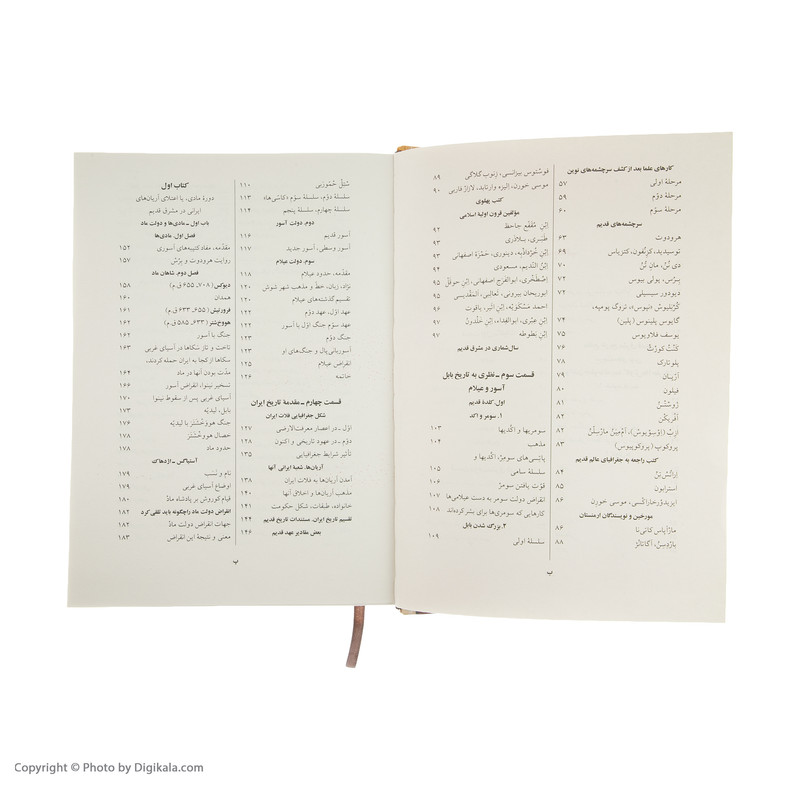 کارهای علما بعد از کشف سرچشمه‌های نوین
مرحلهٔ اولی ۵۷
مرحلهٔ دوّم ۵۹
مرحلهٔ سوّم ۶۰
سرچشمه‌های قدیم
هرودوت ۶۳
توسیدید، کزنُفون، کتزیاس ۶۹
دی نُنْ، مانِ تُنْ ۷۰
برُس، پولی بیوس ۷۲
دیودور سیسیلی ۷۲
کُرنِلیوسْ (نپوس)، تروگ پومپه،
گایوس پلینوس (پلین) ۷۴
یوسف فلاویوس ۷۵
کَنْتْ کورْثْ ۷۶
پلوتارک ۷۸
آرّیان ۷۹
فیلون ۸۰
ژوستَنْ ۸۱
آفریکَنْ ۸۲
ازِبْ (اِوْسِویوسْ)، آمْ‌مِیَنْ مارْسِلَّنْ ۸۲
پروکوپ (پروکوپیوس) ۸۳
کتب راجعه به جغرافیای عالم قدیم
اراتُسْ‌تِنْ ۸۴
استرابون ۸۵
ایزیدوُرخاراکْسی، موسی خورن ۸۶
مورخین و نویسندگان ارمنستان
مارآپاس کاتی‌نا ۸۶
بارْدِسِنْ، آگاتانْژ ۸۸
فوستوس بیزانسی، زنوب گلاکی ۸۹
موسی خورن، اِلیزه وارتابد، لازارْ فاربی ۹۰
کتب پهلوی
مؤلفین قرون اولیهٔ اسلامی
اِبْنِ مُقَفَّع جاحظ ۹۲
طَبَری، بلاذری ۹۳
اِبْنِ خُرْداذبه، دینوری، حَمْزهٔ اصفهانی ۹۳
اِبْنُ النَّدیم، مسعودی ۹۴
اِصْطَخْری، ابوالفرج اصفهانی، اِبْنِ حوقَلْ ۹۵
ابوریحان بیرونی، ثَعالبی، المَقْدِیسی ۹۵
احمد مَسْکوَیْه، ابْنِ اثیر، یاقوت ۹۶
ابْنِ عِبْری، ابوالفِداء، اِبْنِ خَلْدونْ ۹۷
اِبْنِ بطوطه ۹۷
سال‌شماری در مشرق قدیم
قسمت سوم ـ نظری به تاریخ بابل
آسور و عیلام
اول. کَلدهٔ قدیم
۱. سومر و اکد
سومریها و اکَّدیها ۱۰۳
مذهب ۱۰۴
پاتِسی‌های سومِرْ، اکَّدیها و
سلسلهٔ سامی ۱۰۵
قوّت یافتن سومِرْ ۱۰۶
انقراض دولت سومر به دست عیلامی‌ها ۱۰۷
کارهایی که سومری‌ها برای بشر کرده‌اند ۱۰۸
۲. بزرگ شدن بابل
سلسلهٔ اولی ۱۰۹
ب
سُتُلْ حَمّورَبی ۱۱۰
سلسلهٔ دوّم، سلسلهٔ سوّم «کاسّی‌ها» ۱۱۳
سلسلهٔ چهارم، سلسلهٔ پنجم ۱۱۴
دوم. دولت آسور
آسور قدیم ۱۱۶
آسور وسطی، آسور جدید ۱۱۷
سوم. دولت عیلام
مقدّمه، حدود عیلام ۱۱۸
نژاد، زبان، خطّ و مذهب شهر شوش ۱۲۰
تقسیم گذشته‌های عیلام ۱۲۰
عهد اوّل، عهد دوّم ۱۲۲
عهد سوّم جنگ اوّل با آسور ۱۲۲
جنگ دوّم ۱۲۳
آسوربانی‌پال و جنگ‌های او ۱۲۳
انقراض عیلام ۱۲۵
خاتمه ۱۲۶
قسمت چهارم ـ مقدمهٔ تاریخ ایران
شکل جغرافیایی فلات ایران
اوّل ـ در اعصار معرفت‌الارضی ۱۲۷
دوّم ـ در عهود تاریخی و اکنون ۱۲۸
تأثیر شرایط جغرافیایی ۱۳۵
آریان‌ها، شعبهٔ ایرانی آنها
آمدن آریان‌ها به فلات ایران ۱۳۸
مذهب آریان‌ها و اخلاق آنها ۱۴۰
خانواده، طبقات، شکل حکومت ۱۴۱
تقسیم تاریخ ایران، مستندات تاریخ قدیم ۱۴۴
بعض مقادیر عهد قدیم ۱۴۶
کتاب اول
دورهٔ مادی، یا اعتلای آریان‌های
ایرانی در مشرق قدیم
باب اول ـ مادی‌ها و دولت ماد
فصل اول. مادی‌ها
مقدّمه، مفاد کتیبه‌های آسوری ۱۵۲
روایت هرودوت و برُسْ ۱۵۷
فصل دوم. شاهان ماد
دیوکِس (۷۰۸، ۶۵۵ ق.م) ۱۵۸
همدان ۱۶۰
فرورتیش (۶۵۵، ۶۳۳ ق.م) ۱۶۱
هووخ‌شتر (۶۳۳، ۵۸۵ ق.م) ۱۶۲
جنگ با آسور ۱۶۲
تاخت و تاز سَکاها در آسیای غربی ۱۶۳
سکاها از کجا به ایران حمله کردند.
مدّت بودن آنها در ماد ۱۶۴
تسخیر نینوا، انقراض آسور ۱۶۶
آسیای غربی پس از سقوط نینوا ۱۷۰
بابل، لیدیّه ۱۷۳
جنگ هووخْشَتَرَ با لیدیّه ۱۷۶
خصال هووخْشَتَرَ ۱۷۸
حدود مادْ ۱۷۸
آستیاگِس ـ اژدهاک
نام و نَسَب ۱۷۹
اوضاع آسیای غربی ۱۷۹
قیام کوروش بر پادشاه مادْ ۱۸۰
انقراض دولت ماد را چگونه باید تلقی کرد ۱۸۲
جهات انقراض دولت مادْ ۱۸۲
معنی و نتیجهٔ این انقراض ۱۸۳
پ
Copyright © Photo by Digikala.com